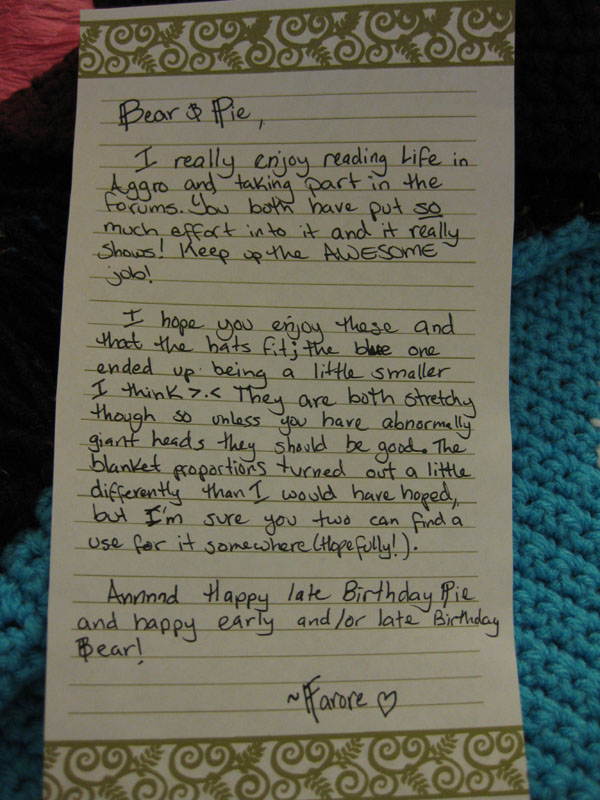 Bear & Pie,
I really enjoy reading Life in
Aggro and taking part in the
forums. You both have put so
much effort into it and it really
shows! Keep up the AWESOME
job!
I hope you enjoy these and
that the hats fit; the blue one
ended up being a little smaller
I think >.< They are both stretchy
though so unless you have abnormally
giant heads they should be good. The
blanket proportions turned out a little
differently than I would have hoped,
but I'm sure you two can find a
use for it somewhere (Hopefully!).
Annnnd Happy late Birthday Pie
and happy early and/or late Birthday
Bear!
~Farore ♡